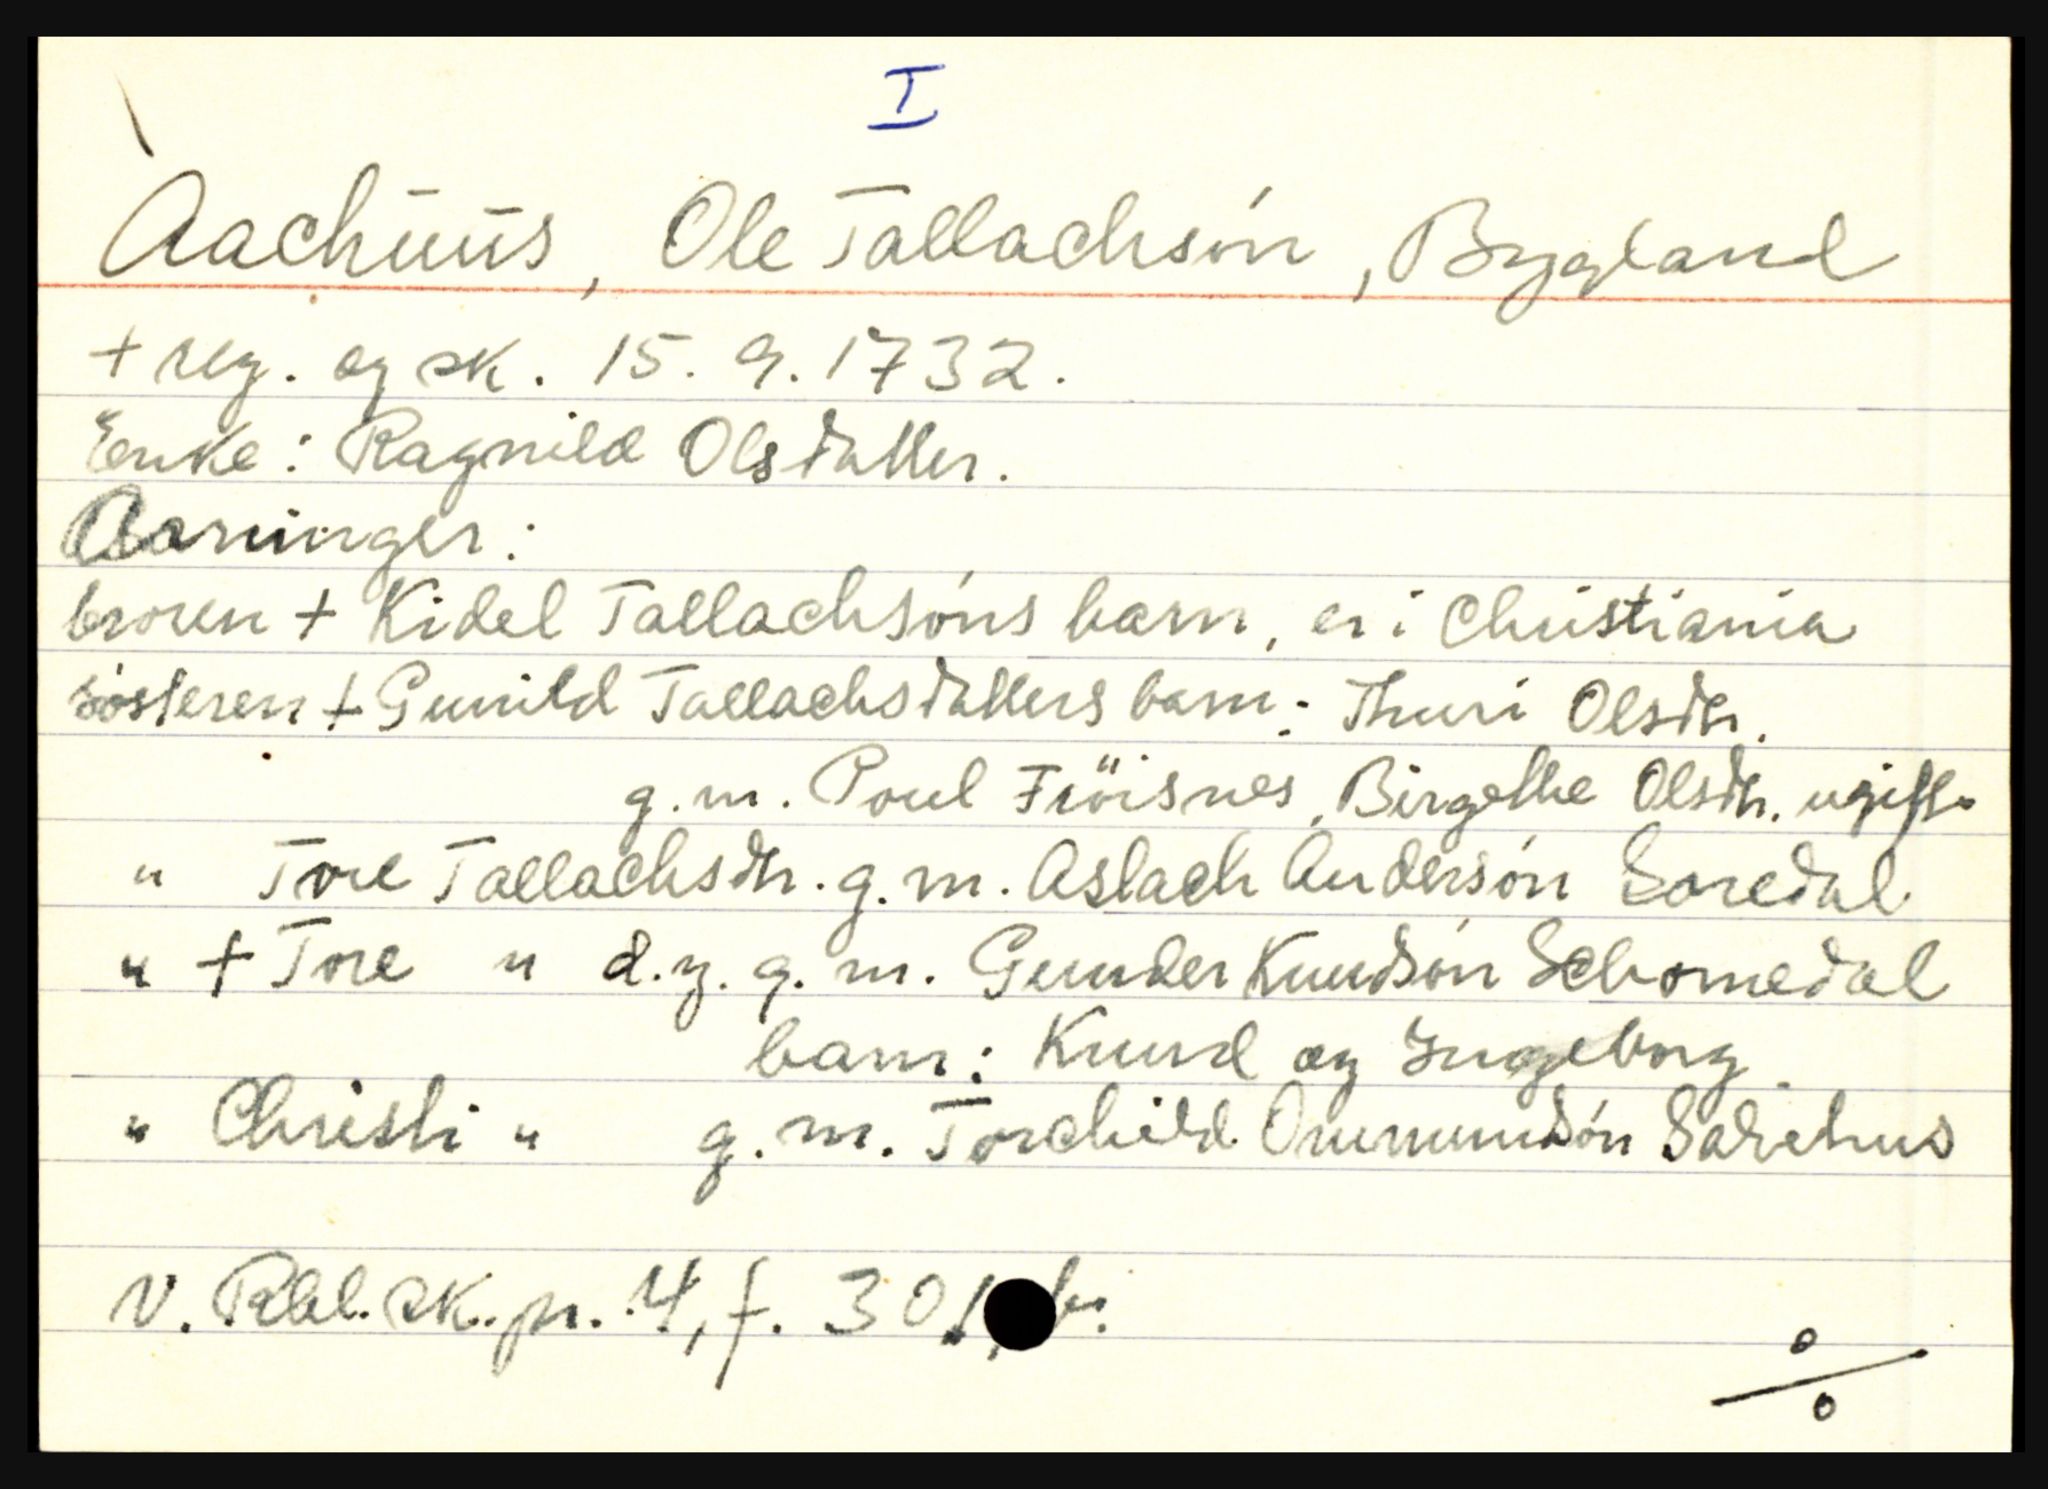 I
Aachuus, Ole Tallachsón, Bygland
+ reg. og sk. 15. 9. 1732.
Enke: Ragnild Olsdatter.
Aarvinger:
broren + Kidel Tallachsóns barn, er i Christiania
sósteren + Gunild Tallachsdatters barn: Thuri Olsdtr.
g.m. Poul Fröisnes, Birgethe Olsdtr. ugift.
" Tore Tallachsdtr. g.m. Aslach Andersón Soredal
" + Tore " d.y. g.m. Gunder Knudsón Schomedal
barn: Knud og Ingeborg.
" Christi " g.m. Torchild Ommundsón Salvehus
V. Rbl. sk.pr. 4, f. 301,
o/o